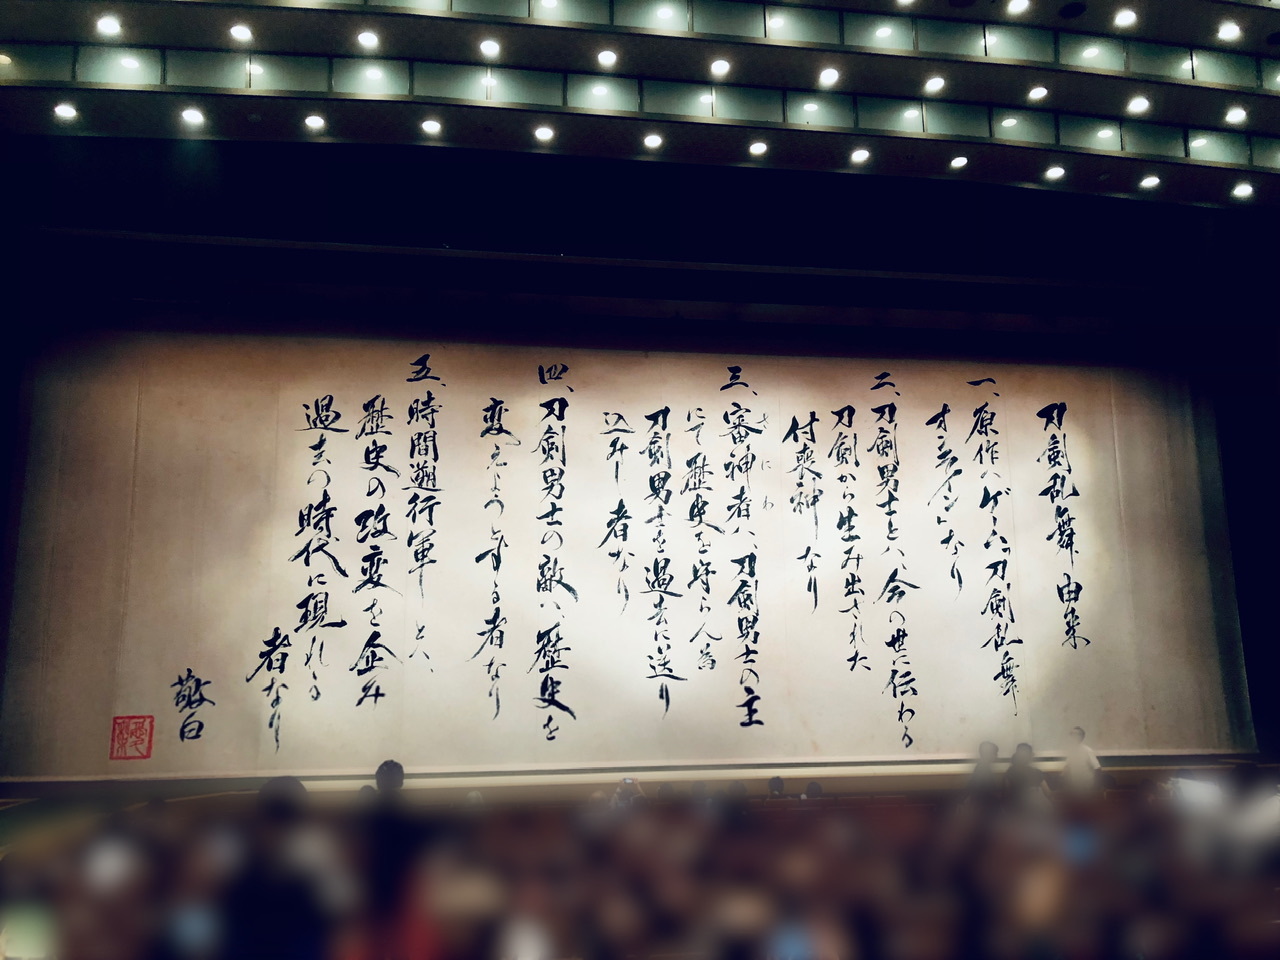 刀剣乱舞 由来
一、原作ハゲーム『刀剣乱舞
オンライン』なり
二、刀剣男士とハ、今の世に伝わる
刀剣から生み出された
付喪神なり
三、審神者ハ、刀剣男士の主
さにわ
にて歴史を守らん為
刀剣男士を過去に送り
込みし者なり
四、刀剣男士の敵ハ、歴史を
変えようとする者なり
五、時間遡行軍とハ、
歴史の改変を企み
過去の時代に現れる
者なり
敬白